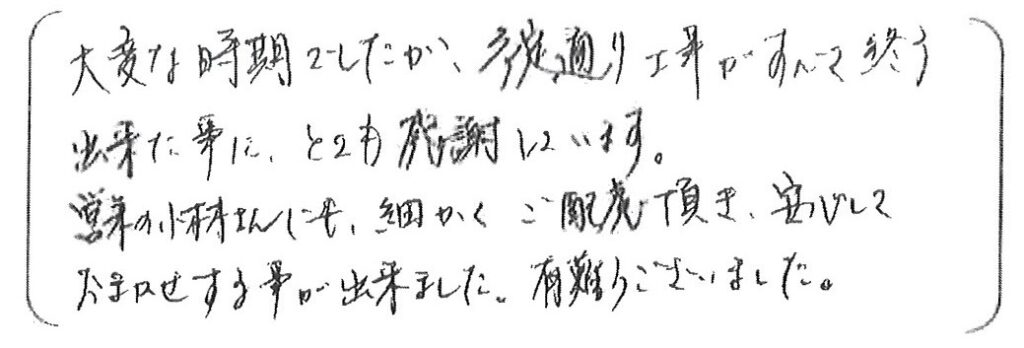 大変な時期でしたが、予定通り工事がすべて終う
出来た事に、とても感謝しています。
営業の小林さんにも、細かくご配慮頂き、安心して
お任せする事が出来ました。有難うございました。